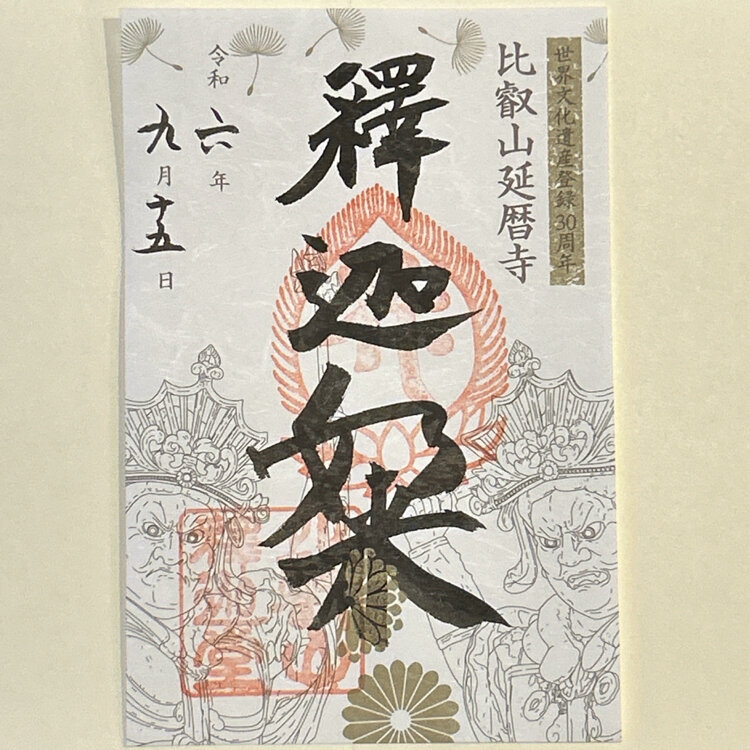 世界文化遺産登録30周年
比叡山延暦寺
釋迦如来
令和六年
九月十五日